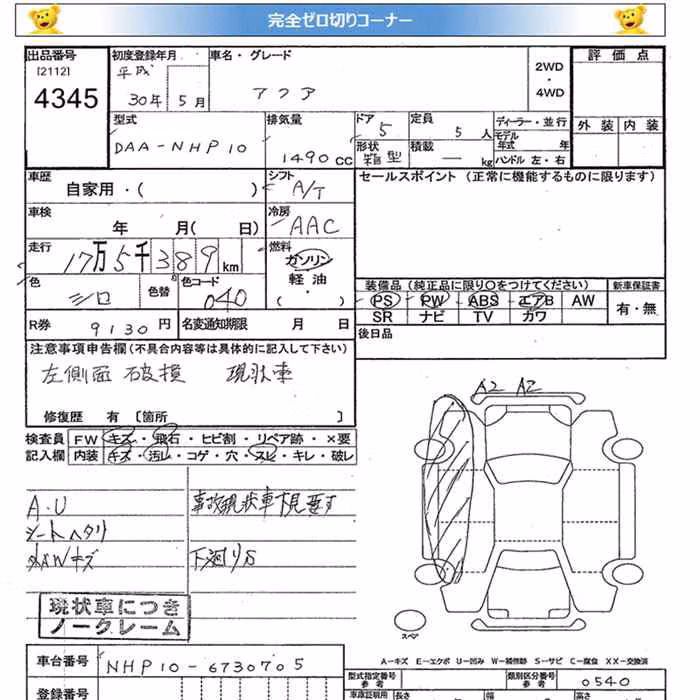 完全ゼロ切りコーナー
出品番号
[2112]
4345
初度登録年月
平成
30年 5月
車名・グレード
アクア
2WD
・
4WD
評価点
外装 内装
型式
DAA-NHP10
排気量
1490 CC
ドア
5
定員
5 人
形状
箱型
積載
— kg
ディーラー・並行
モデル
年式 年
ハンドル 左・右
車歴
自家用・( )
シフト
A/T
セールスポイント (正常に機能するものに限ります)
車検
年 月( 日)
冷房
AAC
走行
17万5千389km
燃料
ガソリン
軽油
( ・ )
色
シロ
色替
色コード
040
装備品 (純正品に限り〇をつけてください)
新車保証書
PS PW ABS エアB AW
SR ナビ TV カワ
有・無
R券 9130円
名変通知期限 月 日
後日品
注意事項申告欄(不具合内容等は具体的に記入して下さい)
左側面 破損 現状車
修復歴 有 [箇所 ]
A2 A2
検査員
記入欄
FW キズ・飛石・ヒビ割・リペア跡・×要
内装 キズ・汚レ・コゲ・穴・スレ・キレ・破レ
A.U
事故現状車下見要す
シートヘタリ
下廻りS
現状車につき
ノークレーム
スペア
A―キズ E―エクボ U―凹み W―補修跡 S―サビ C―腐食 XX―交換済
車台番号
NHP10-6730705
型式指定番号
参考
類別区分番号
参考
0540
登録番号
車庫証明用
参考
長さ
幅
高さ